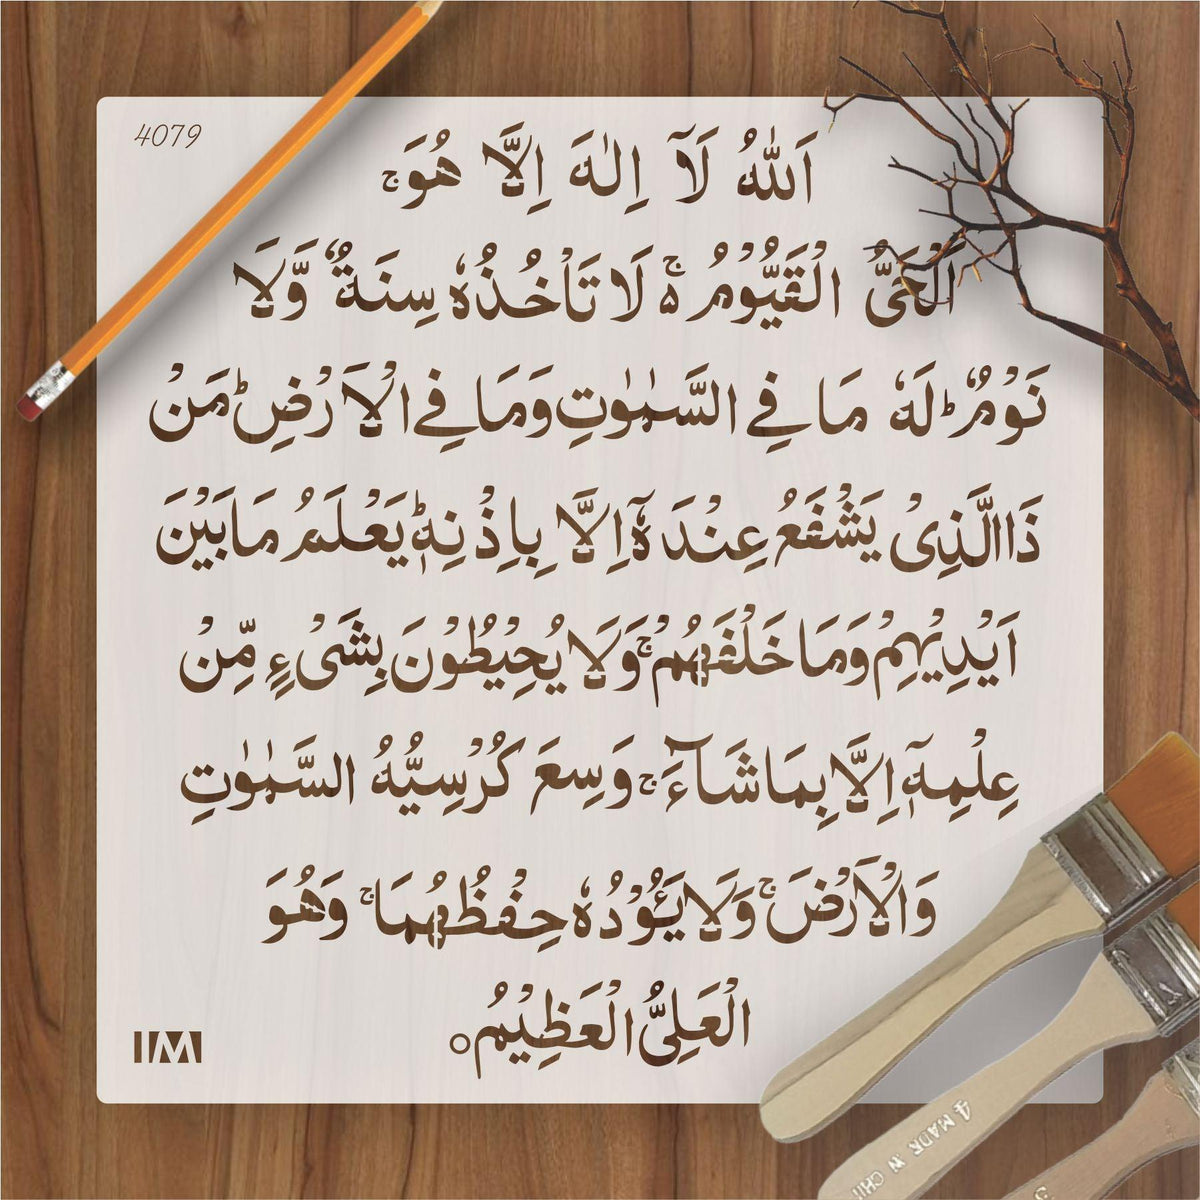 4079
اَللّٰهُ لَاۤ اِلٰهَ اِلَّا هُوَۚ
اَلْحَیُّ الْقَیُّوْمُ ۵ۚ لَا تَاْخُذُهٗ سِنَةٌ وَّلَا
نَوْمٌؕ لَهٗ مَا فِی السَّمٰوٰتِ وَمَا فِی الْاَرْضِؕ مَنْ
ذَا الَّذِیْ یَشْفَعُ عِنْدَهٗۤ اِلَّا بِاِذْنِهٖؕ یَعْلَمُ مَا بَیْنَ
اَیْدِیْهِمْ وَمَا خَلْفَهُمْۚ وَلَا یُحِیْطُوْنَ بِشَیْءٍ مِّنْ
عِلْمِهٖۤ اِلَّا بِمَا شَآءَۚ وَسِعَ كُرْسِیُّهُ السَّمٰوٰتِ
وَالْاَرْضَۚ وَلَا یَئُوْدُهٗ حِفْظُهُمَاۚ وَهُوَ
الْعَلِیُّ الْعَظِیْمُ○
4 MADE IN CHI